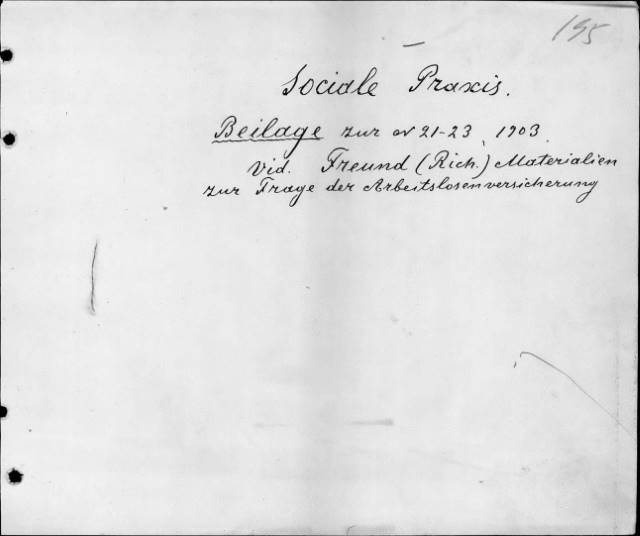 195
Sociale Praxis.
Beilage zur № 21-23, 1903
Vid. Freund (Rich.) Materialien
zur Frage der Arbeitslosenversicherung